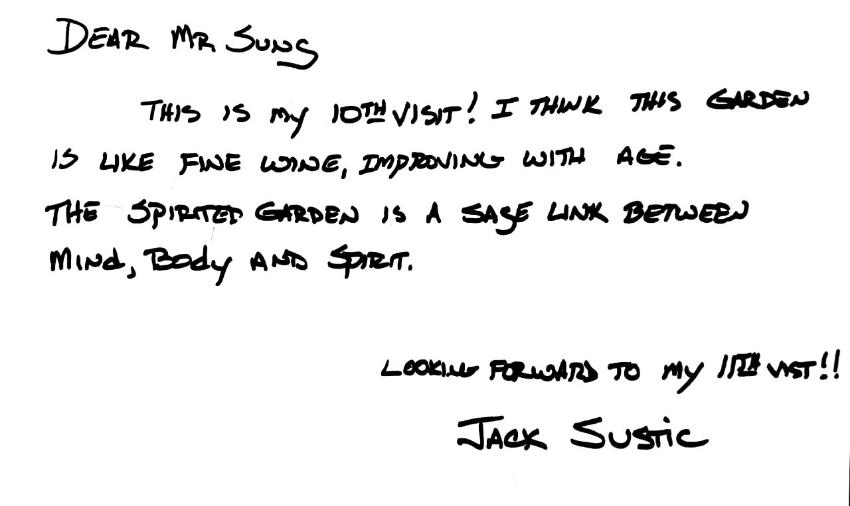 DEAR MR SUNG
THIS IS MY 10TH VISIT! I THINK THIS GARDEN
IS LIKE FINE WINE, IMPROVING WITH AGE.
THE SPIRITED GARDEN IS A SAGE LINK BETWEEN
MIND, BODY AND SPIRIT.
LOOKING FORWARD TO MY 11TH VIST!!
JACK SUSTIC